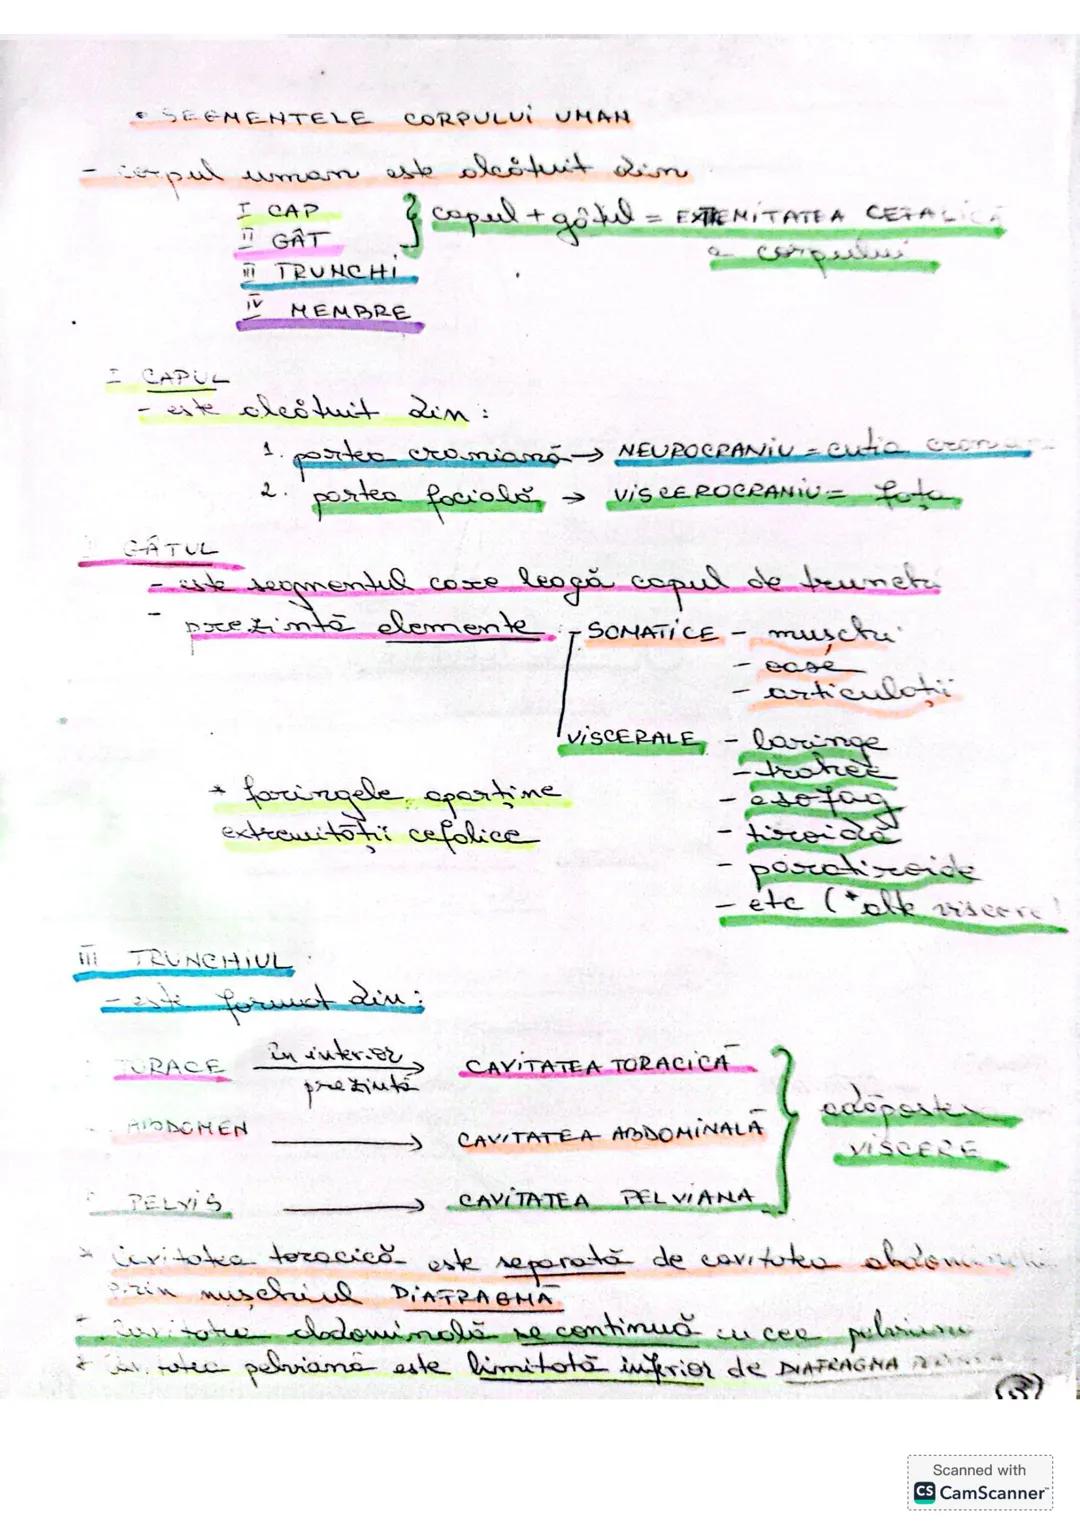 • SEGMENTELE CORPULUI UMAN
- corpul uman este alcătuit din
I CAP } capul + gâtul = EXTREMITATEA CEFALICĂ
II GÂT a corpului
III TRUNCHI
IV MEMBRE
I CAPUL
- este alcătuit din:
1. partea craniană → NEUROCRANIU = cutia
2. partea facială → VISCEROCRANIU = fața
GÂTUL
- este segmentul care leagă capul de trunchi
- prezintă elemente SOMATICE - mușchi
- oase
- articulații
VISCERALE - laringe
- trahee
* faringele aparține - esofag
extremității cefalice - tiroidă
- paratiroide
- etc (*alte viscere)
III TRUNCHIUL
- este format din:
TORACE în interior prezintă → CAVITATEA TORACICĂ
ABDOMEN → CAVITATEA ABDOMINALĂ } adăpostesc VISCERE
PELVIS → CAVITATEA PELVIANA
* Cavitatea toracică este separată de cavitatea abdominală
prin mușchiul DIAFRAGMĂ
* Cavitatea abdominală se continuă cu cea pelviană
* Cavitatea pelviană este limitată inferior de DIAFRAGMA
3
Scanned with
CS CamScanner